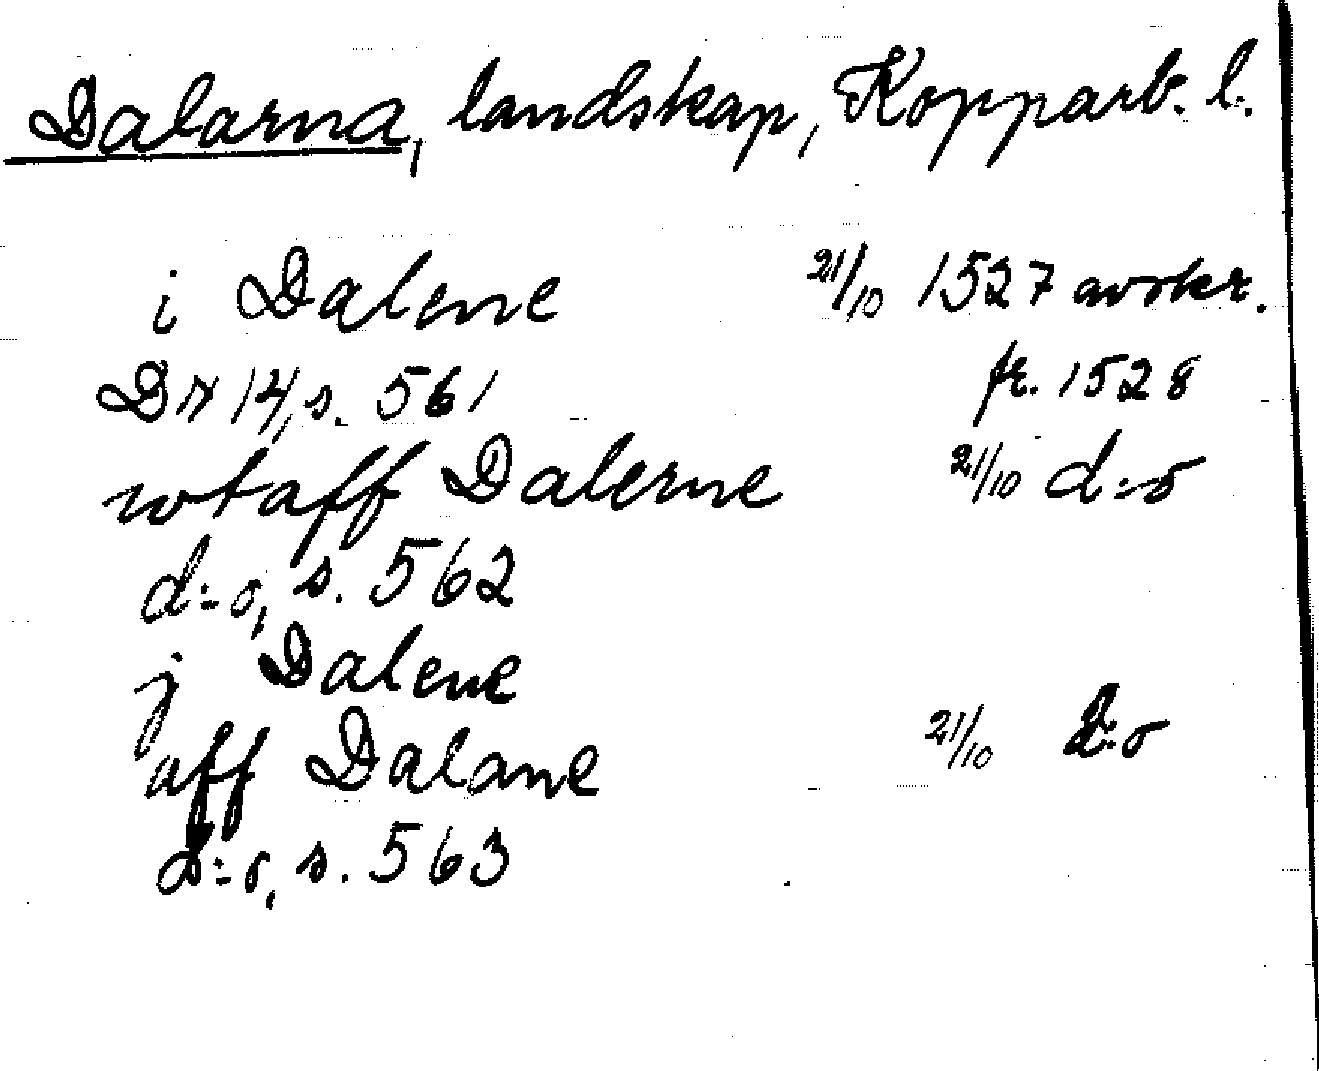 Dalarna, landskap, Kopparb. l.
i Dalene 21/10 1527 avskr.
DN 14, s. 561 fr. 1528
wtaff Dalerne 21/10 d:o
d:o, s. 562
j Dalene
aff Dalane 21/10 d:o
d:o, s. 563